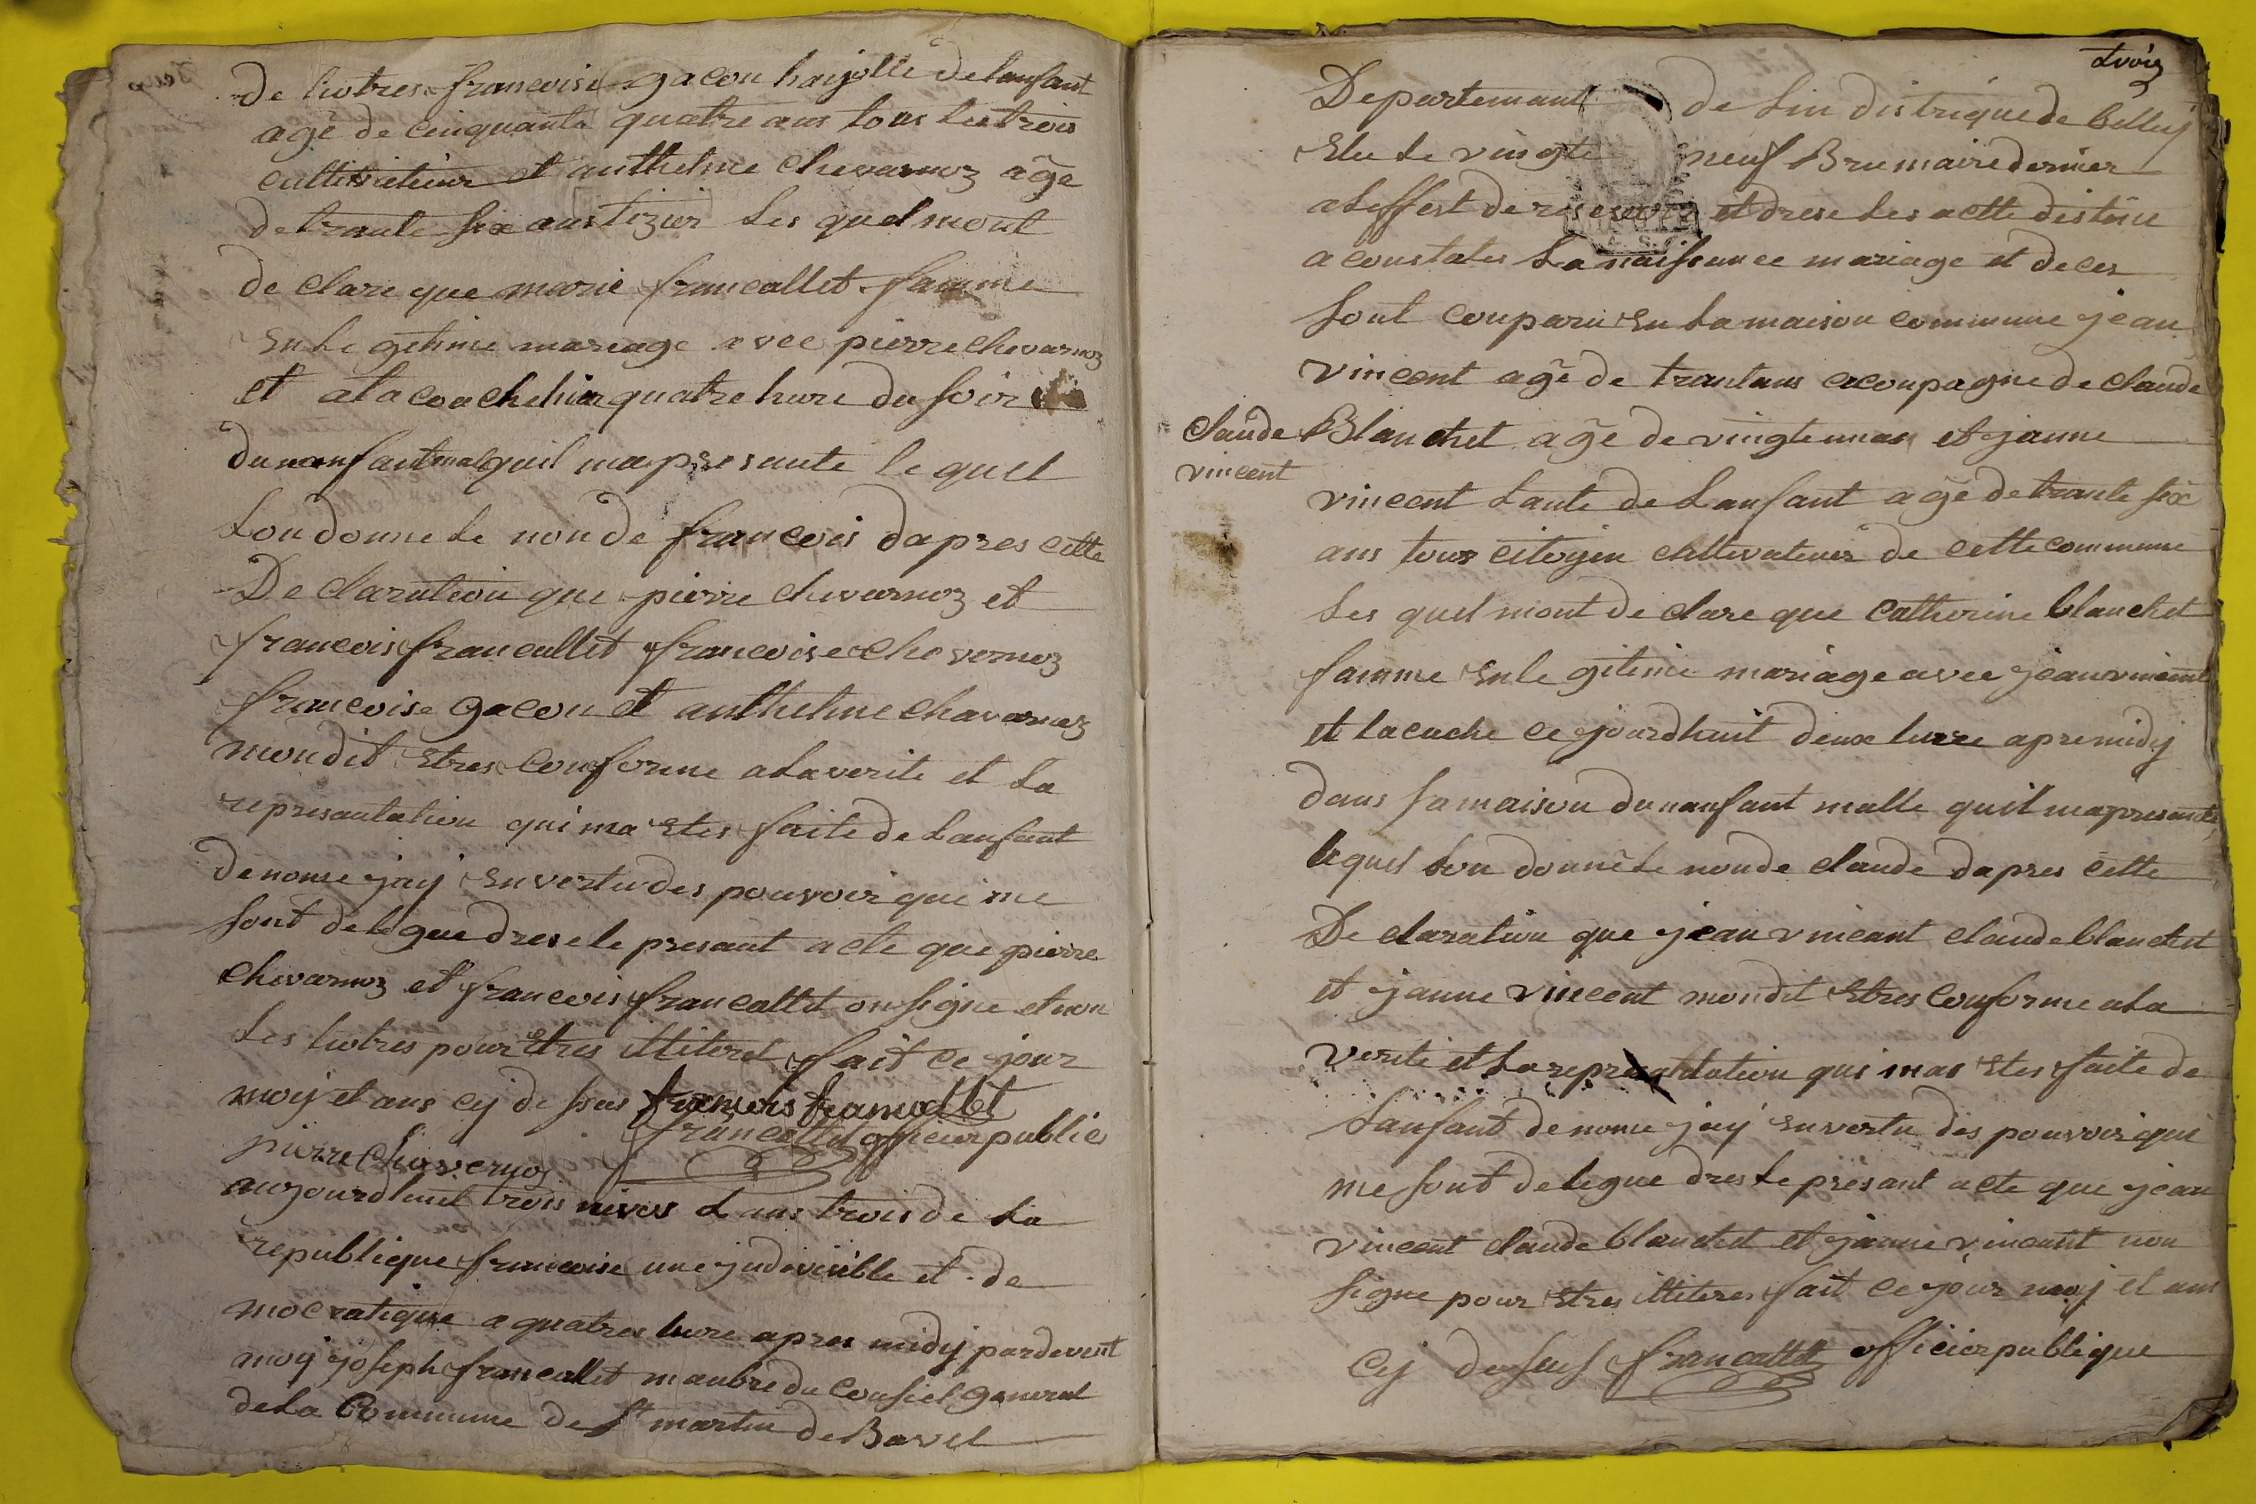 de liotres francoise gacon hayolle de lanfant
agê de cinquante quatre ans tous les trois
cultivateur et anthelme chevarnoz agê
de trante six ans tizier les quel mont
de clare que marie francallet famme
en le gitime mariage avec pierre chevarnoz
et a la couche hier quatre hure du soir
dun anfant mal quil ma presante le quel
lon donne le non de francois dapres cette
De claration que pierre chevarnoz et
francois francallet francoise chevernoz
francoise gacon et anthelme chavarnoz
mon dit etres conforme a la verite et la
represantation qui ma etes faite de lanfant
denome jay en vertu des pouvoir qui me
sont delegue drese le presant acte que pierre
chevarnoz et francois francallet on signe et non
les liotres pour etres illiteret fait ce jour
moy et ans cy de ssus francois francallet
francallet officier publie
pierre chavernoz
aujourdhuit trois nivos lans trois de la
republique francoise une judivisible et de
mocratique a quatres hure apres midy pardevent
moy joseph francallet manbre du consiel general
de la Commune de St martin de Bavel
trois
Departemant de lin distrique de belley
Elu le vingte neuf Brumaire dernier
a leffest de resevoir et drese les actte destine
a constates la naissance mariage et deces
sont conparu en la maison commune jean
vincent agê de trantans aconpagne de claude
claude
vincent
Blanchet agê de vingte un an et janne
vincent tante de lanfant agê de trante six
ans tous citoyin cultevateur de cette commune
les quel mont de clare que catherine blanchet
famme en le gitime mariage avec jean vincent
et la cuche ce jourdhuit deux hurre apre midy
dans sa maison dun anfant malle quil ma presante
le quel lon donnê le non de claude dapres cette
De claration que jean vincant claude blanchet
et janne vincent mon dit etres conforme a la
verite et la represantation qui mas etes faite de
lanfant de nome jay en vertu des pouvoir qui
me sont delegue dres le presant acte que jean
vincent claude blanchet et janne vincant non
signe pour etres illiteres fait ce jour moy et ans
cy desus francallet officier publique